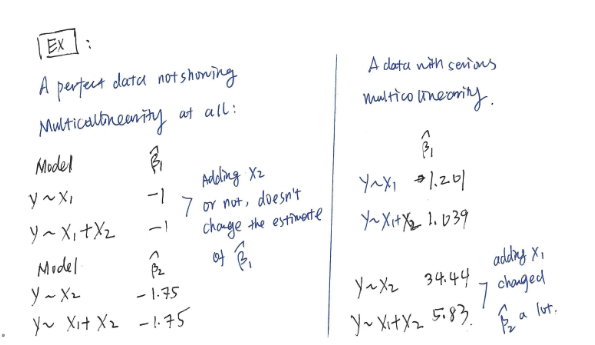 Ex :
A perfect data not showing
Multicollinearity at all:
Model β̂₁
Y ~ X₁ -1
Y ~ X₁ + X₂ -1
Adding X₂
or not, doesn't
change the estimate
of β̂₁
Model β̂₂
Y ~ X₂ -1.75
Y ~ X₁ + X₂ -1.75
A data with serious
multicolinearity.
β̂₁
Y ~ X₁ 1.201
Y ~ X₁ + X₂ 1.039
Y ~ X₂ 34.44
Y ~ X₁ + X₂ 5.83
adding X₁
changed
β̂₂ a lot.